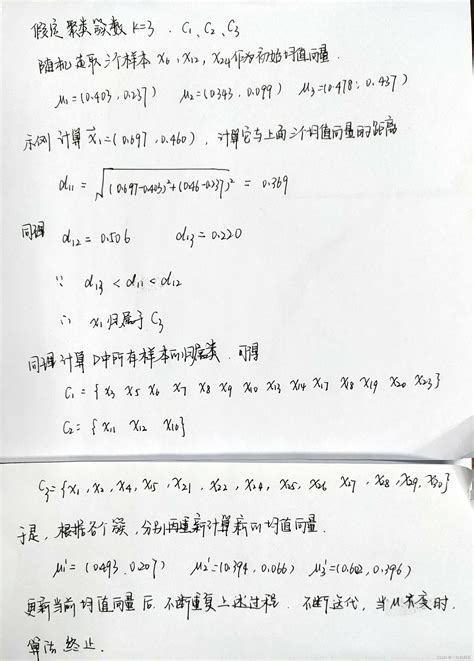 假定聚类簇数 k=3 . C₁、C₂、C₃
随机选取三个样本 x₆, x₁₂, x₂₄ 作为初始均值向量.
μ₁=(0.403, 0.237) μ₂=(0.343, 0.099) μ₃=(0.478, 0.437)
示例 计算 x₁=(0.697, 0.460), 计算它与上面三个均值向量的距离
d₁₁ = √(0.697-0.403)²+(0.46-0.237)² = 0.369
同理 d₁₂=0.506 d₁₃=0.220
∵ d₁₃ < d₁₁ < d₁₂
∴ x₁归属于 C₃
同理计算D中所有样本的归属类, 可得
C₁={x₃ x₅ x₆ x₇ x₈ x₉ x₁₀ x₁₃ x₁₄ x₁₇ x₁₈ x₁₉ x₂₀ x₂₃}
C₂={x₁₁ x₁₂ x₁₀}
C₃={x₁, x₂, x₄, x₁₅, x₂₁, x₂₂, x₂₄, x₂₅, x₂₆ x₂₇, x₂₈, x₂₉, x₃₀}
于是, 根据各个簇, 分别再重新计算新的均值向量.
μ₁'=(0.493, 0.207) μ₂'=(0.394, 0.066) μ₃'=(0.602, 0.396)
更新当前均值向量后, 不断重复上述过程, 不断迭代, 当μ不变时.
算法终止.